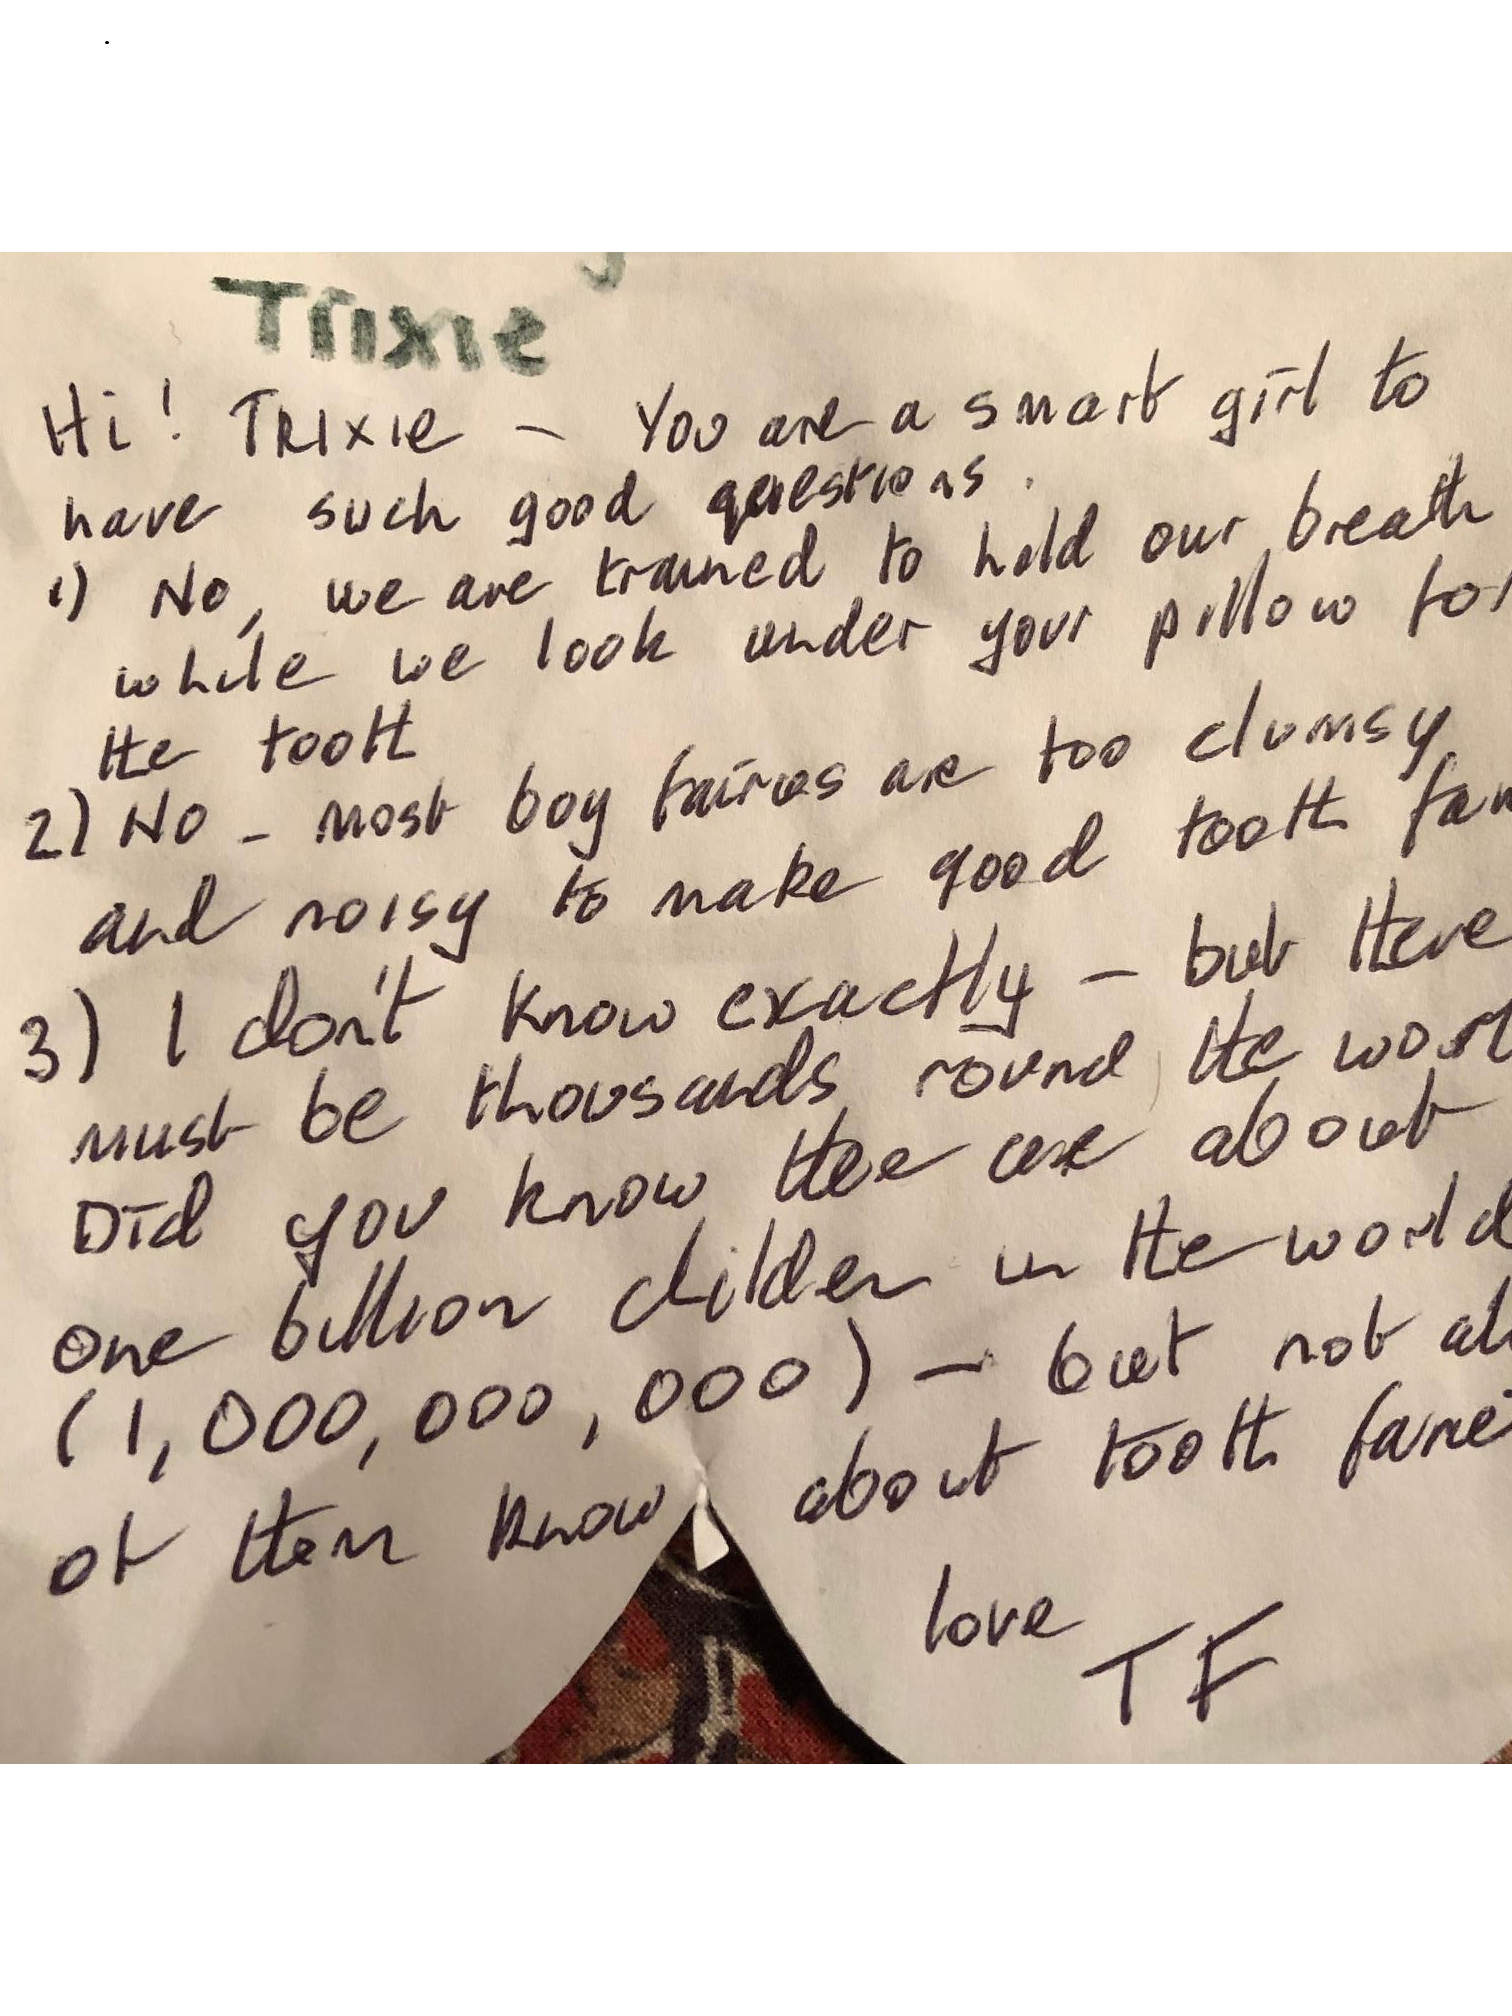 Trixie
Hi! TRIXIE – You are a smart girl to
have such good questions.
1) No, we are trained to hold our breath
while we look under your pillow for
the tooth
2) No – most boy fairies are too clumsy
and noisy to make good tooth fai
3) I don't know exactly – but there
must be thousands round the worl
Did you know there are about
one billion childen in the world
(1,000,000,000) – but not all
of them know about tooth farie
love
TF